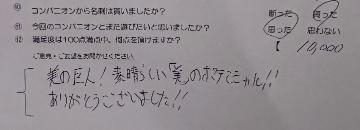 ⑩ コンパニオンから名刺は貰いましたか? 断った 貰った
⑪ 今回のコンパニオンとまた遊びたいと思いましたか? 思った 思わない
⑫ 満足度は100点満点中、何点を頂けますか? 【 10,000
ご意見・ご要望をお聞かせください
美の巨人!素晴らしい「美」のポテンシャル!!
ありがとうございました!!